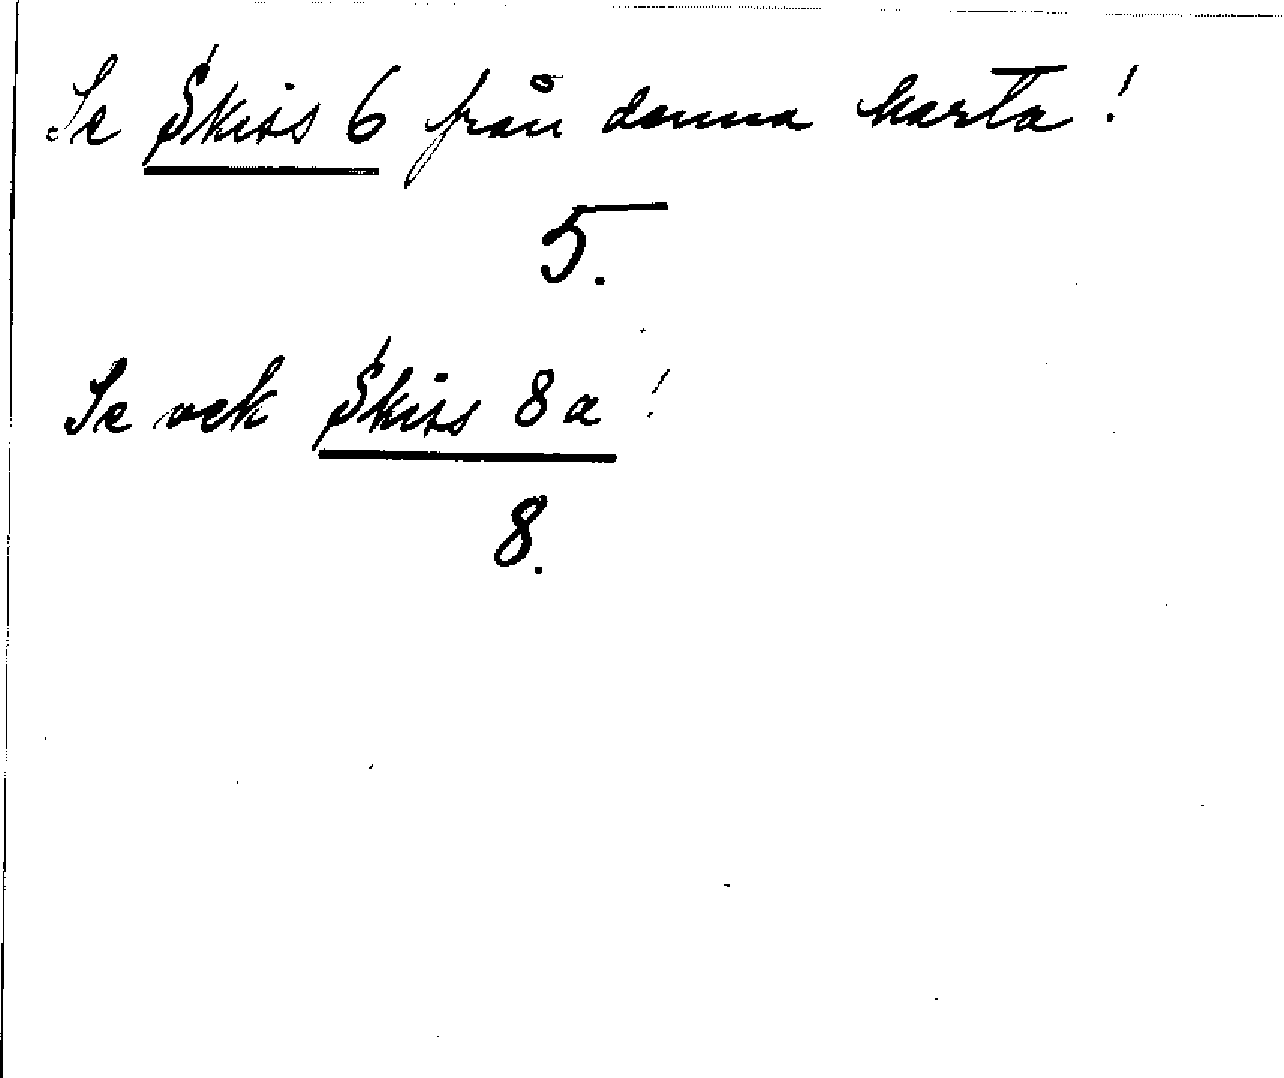 Se Skiss 6 från denna karta!
5.
Se ock Skiss 8a!
8.